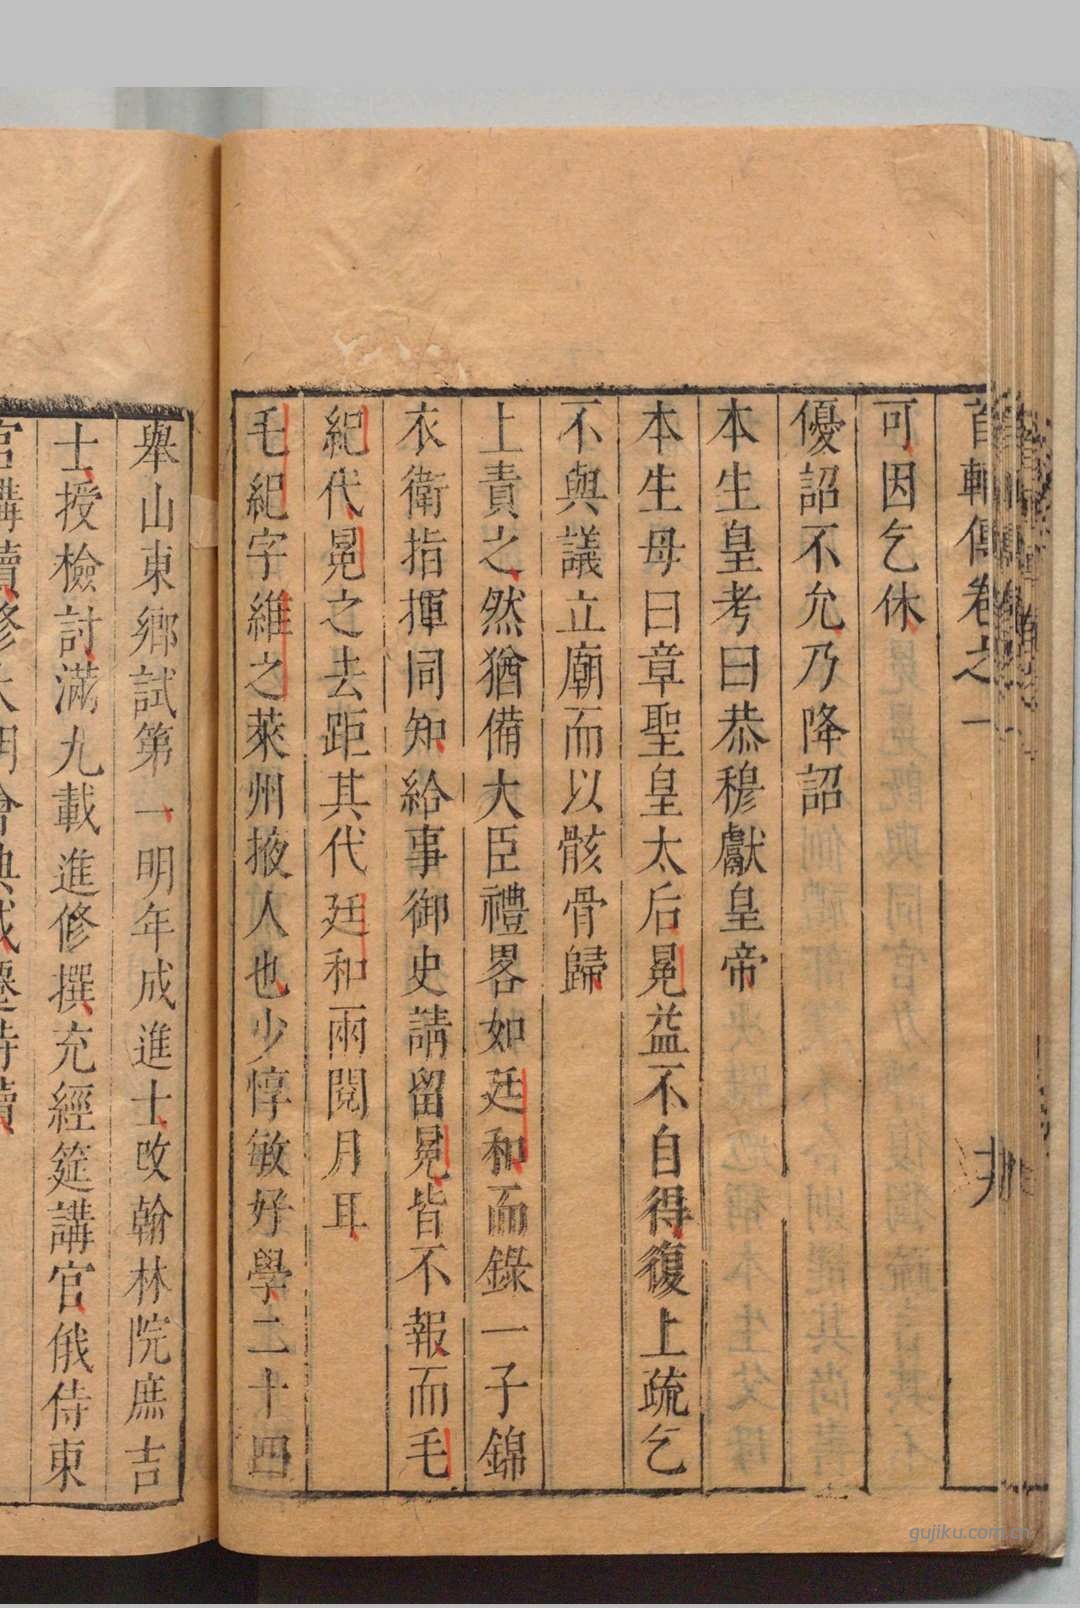 首輔傳卷之一
可因乞休
優詔不允乃降詔
本生皇考曰恭穆獻皇帝
本生母曰章聖皇太后冕益不自得復上疏乞
不與議立廟而以骸骨歸
上責之然猶備大臣禮畧如廷和而錄一子錦
衣衛指揮同知給事御史請留冕皆不報而毛
紀代冕之去距其代廷和兩閱月耳
毛紀字維之萊州掖人也少惇敏好學二十四
舉山東鄉試第一明年成進士改翰林院庶吉
士授檢討滿九載進修撰充經筵講官俄侍東
宮講讀修大明會典成遷侍讀
gujiku.com.cn